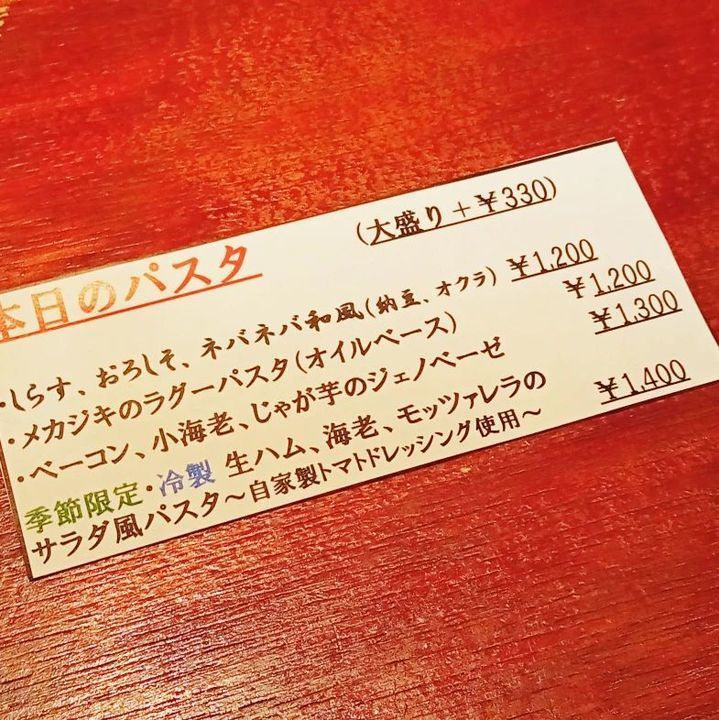 本日のパスタ
(大盛り+¥330)
・しらす、おろしそ、ネバネバ和風(納豆、オクラ) ¥1,200
・メカジキのラグーパスタ(オイルベース) ¥1,200
・ベーコン、小海老、じゃが芋のジェノベーゼ ¥1,300
季節限定・冷製 生ハム、海老、モッツァレラの ¥1,400
サラダ風パスタ～自家製トマトドレッシング使用～